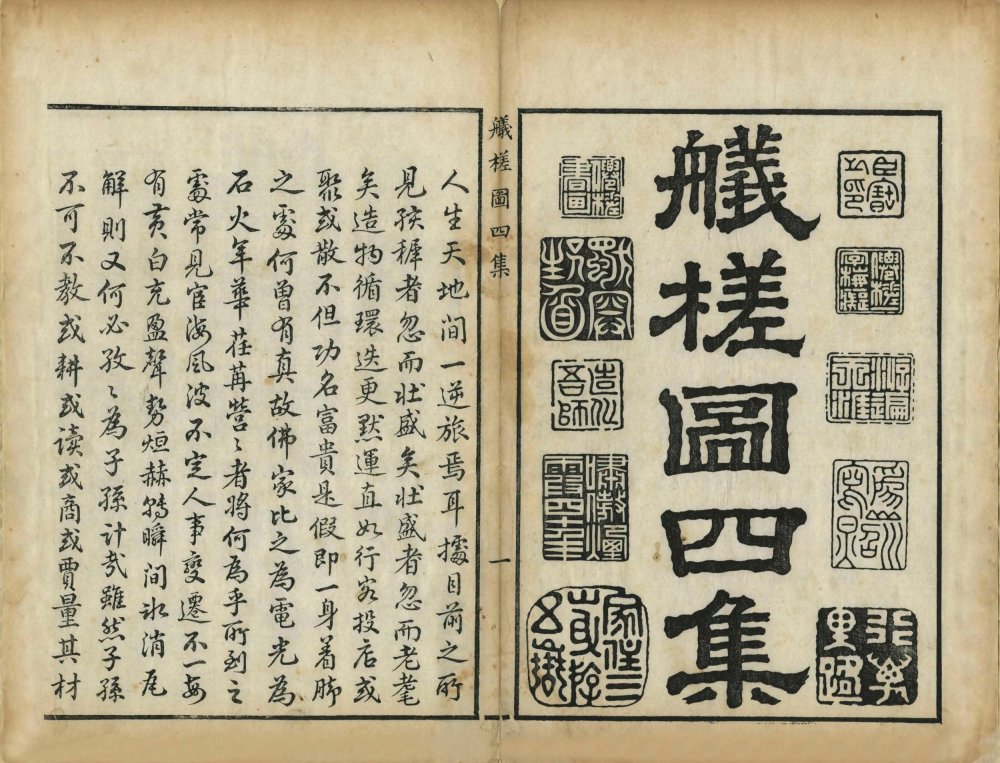 艤槎圖四集
行萬里路
造化吾師
嘯傲煙霞四十年
艤槎圖四集
一
人生天地間一逆旅焉耳據目前之所
見孩穉者忽而壯盛矣壯盛者忽而老耄
矣造物循環迭更默運直如行客投店或
聚或散不但功名富貴是假即一身着腳
之處何曾有真故佛家比之為電光為
石火年華荏苒營〻者將何為乎所到之
處常見宦海風波不定人事變遷不一每
有黃白充盈聲勢烜赫轉瞬間氷消瓦
解則又何必孜〻為子孫計哉雖然子孫
不可不教或耕或读或商或賈量其材